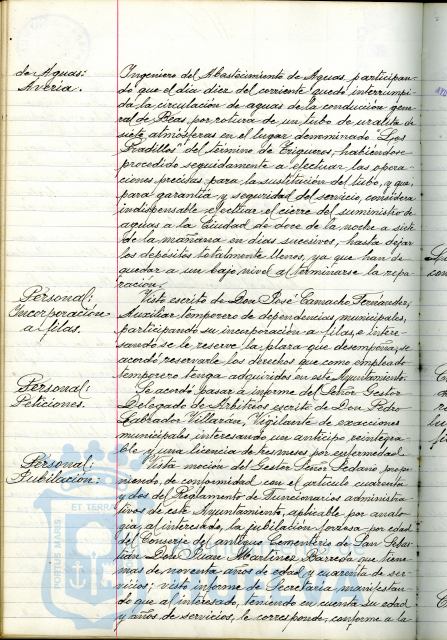 de Aguas:
Avería.
Ingeniero del Abastecimiento de Aguas, participan-
do que el día diez del corriente quedó interrumpi-
da la circulación de aguas de la conducción gene-
ral de Beas, por rotura de un tubo de uralita de
siete atmósferas en el lugar denominado "Los
Pradillos" del término de Trigueros, habiéndose
procedido seguidamente a efectuar las opera-
ciones precisas para la sustitución del tubo, y que
para garantía y seguridad del servicio, considera
indispensable efectuar el cierre del suministro de
aguas a la Ciudad de doce de la noche a siete
de la mañana en días sucesivos, hasta dejar
los depósitos totalmente llenos, ya que han de
quedar a un bajo nivel al terminarse la repa-
ración.
Personal:
Incorporación
a filas.
Visto escrito de Don José Camacho Fernández,
Auxiliar temporero de dependencias municipales,
participando su incorporación a filas, e intere-
sando se le reserve la plaza que desempeña, se
acordó reservarle los derechos que como empleado
temporero tenga adquiridos en este Ayuntamiento.
Personal:
Peticiones.
Se acordó pasar a informe del Señor Gestor
Delegado de Arbitrios escrito de Don Pedro
Labrador Villarán, Vigilante de exacciones
municipales, interesando un anticipo reintegra-
ble y una licencia de tres meses por enfermedad.
Personal:
Jubilación:
Vista moción del Gestor Señor Sedano, propo-
niendo, de conformidad con el artículo cuarenta
y dos del Reglamento de Funcionarios administra-
tivos de este Ayuntamiento, aplicable por analo-
gía al interesado, la jubilación forzosa por edad
del Conserje del antiguo Cementerio de San Sebas-
tián Don Juan Martínez Barreda que tiene
mas de noventa años de edad y cuarenta de ser-
vicios; visto informe de Secretaría manifestan-
do que al interesado, teniendo en cuenta su edad
y años de servicios, le corresponde, conforme a la
PORTUS MARIS
ET TERRAE